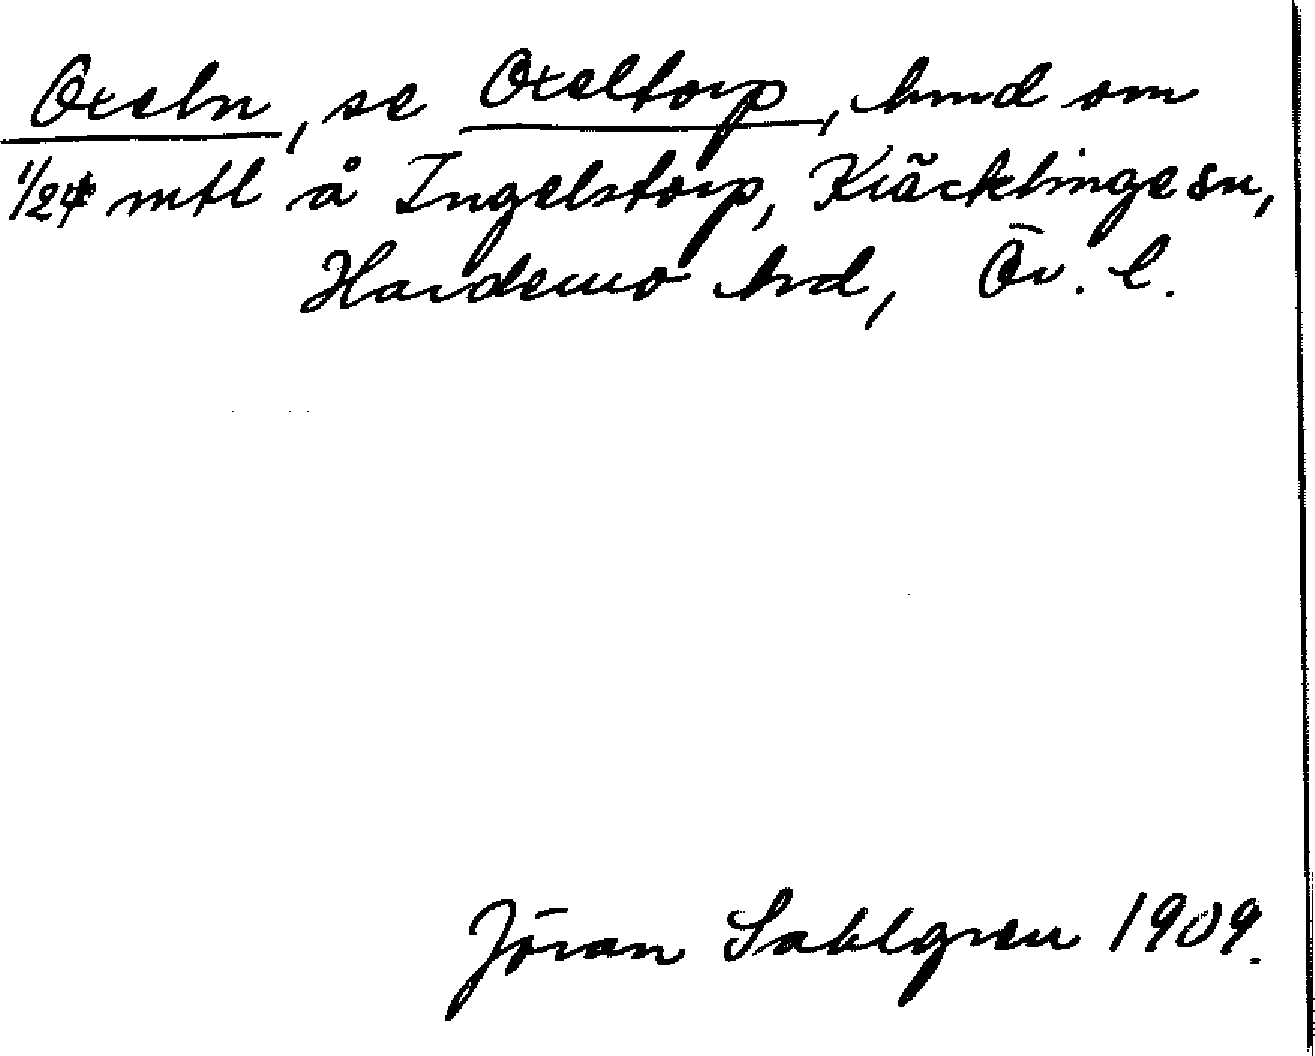 Oxeln, se Oxeltorp, hmd om
1/24 mtl å Ingelstorp, Kräcklinge sn,
Hardemo hrd, Ör. l.
Jöran Sahlgren 1909.